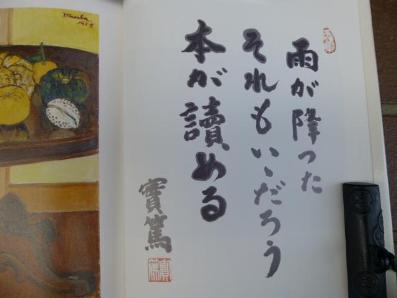 雨が降った
それもいゝだろう
本が讀める
實篤